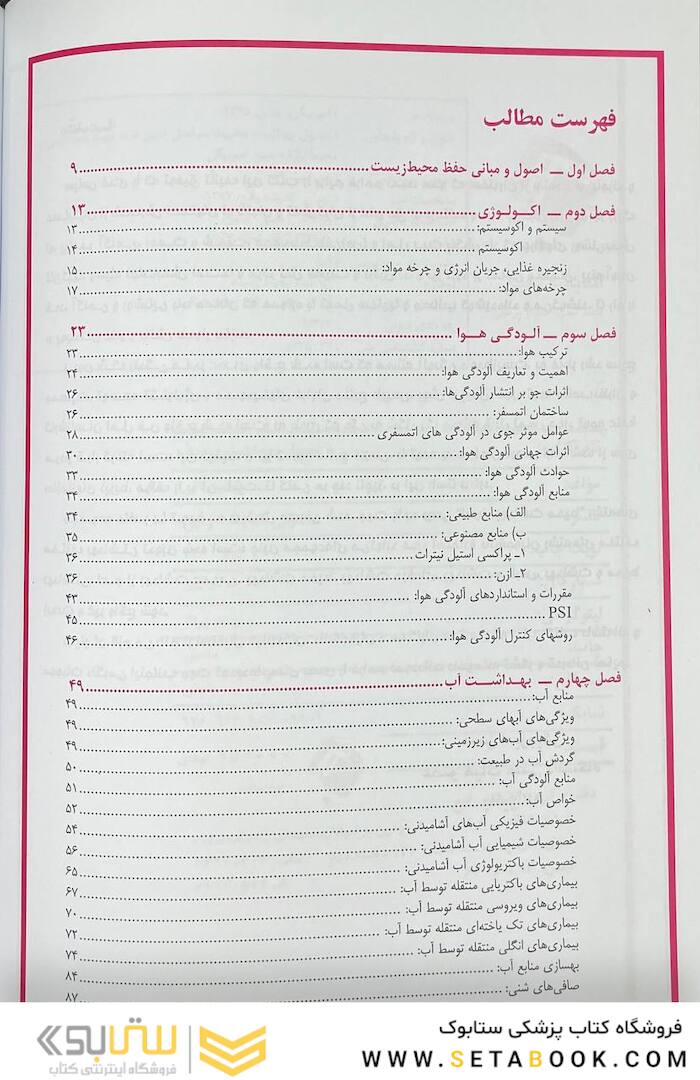 فهرست مطالب
فصل اول ــ اصول و مبانی حفظ محیط‌زیست ........ ۹
فصل دوم ــ اکـولـوژی ........ ۱۳
سیستم و اکوسیستم: ........ ۱۳
اکوسیستم ........ ۱۴
زنجیره غذایی، جریان انرژی و چرخه مواد: ........ ۱۵
چرخه‌های مواد: ........ ۱۷
فصل سوم ــ آلـودگـی هـوا ........ ۲۳
ترکیب هوا: ........ ۲۳
اهمیت و تعاریف آلودگی هوا: ........ ۲۴
اثرات جو بر انتشار آلودگی‌ها: ........ ۲۶
ساختمان اتمسفر: ........ ۲۶
عوامل موثر جوی در آلودگی های اتمسفری ........ ۲۸
اثرات جهانی آلودگی هوا: ........ ۳۰
حوادث آلودگی هوا: ........ ۳۳
منابع آلودگی هوا: ........ ۳۴
الف) منابع طبیعی: ........ ۳۴
ب) منابع مصنوعی: ........ ۳۵
۱ـ پراکسی استیل نیترات ........ ۳۶
۲ـ ازن: ........ ۳۶
مقررات و استانداردهای آلودگی هوا: ........ ۴۳
PSI ........ ۴۵
روشهای کنترل آلودگی هوا: ........ ۴۶
فصل چهارم ــ بهـداشـت آب ........ ۴۹
منابع آب: ........ ۴۹
ویژگی‌های آبهای سطحی: ........ ۴۹
ویژگی‌های آب‌های زیرزمینی: ........ ۴۹
گردش آب در طبیعت: ........ ۵۰
منابع آلودگی آب: ........ ۵۱
خواص آب: ........ ۵۲
خصوصیات فیزیکی آب‌های آشامیدنی: ........ ۵۴
خصوصیات شیمیایی آب آشامیدنی: ........ ۵۶
خصوصیات باکتریولوژی آب آشامیدنی: ........ ۶۵
بیماری‌های باکتریایی منتقله توسط آب: ........ ۶۷
بیماری‌های ویروسی منتقله توسط آب: ........ ۷۰
بیماری‌های تک یاخته‌ای منتقله توسط آب: ........ ۷۲
بیماری‌های انگلی منتقله توسط آب: ........ ۷۴
بهسازی منابع آب: ........ ۸۴
صافی‌های شنی: ........ ۸۷
فروشگاه کتاب پزشکی ستابوک
WWW.SETABOOK.COM
ستابوک
فروشگاه اینترنتی کتاب